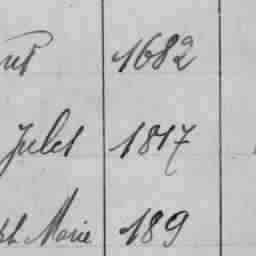 1682
Jules 1817
Marie 189